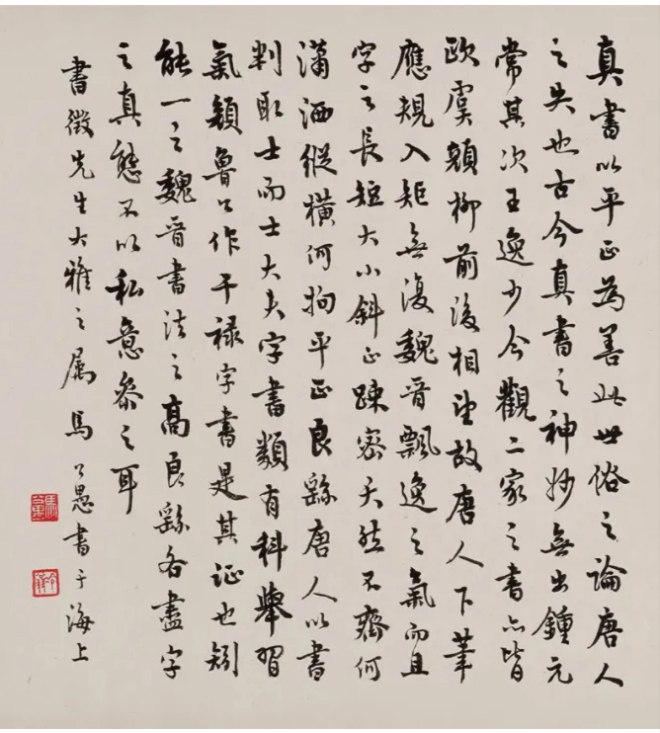 真書以平正為善此世俗之論唐人
之失也古今真書之神妙無出鍾元
常其次王逸少今觀二家之書亦皆
歐虞顏柳前後相望故唐人下筆
應規入矩無復魏晉飄逸之氣而且
字之長短大小斜正踈密天然不齊何
瀟洒縱橫何拘平正良繇唐人以書
判取士而士大夫字書類有科舉習
氣顏魯公作干祿字書是其證也矧
能一之魏晉書法之高良繇各盡字
之真態不以私意參之耳
書徵先生大雅之屬馬公愚書于海上